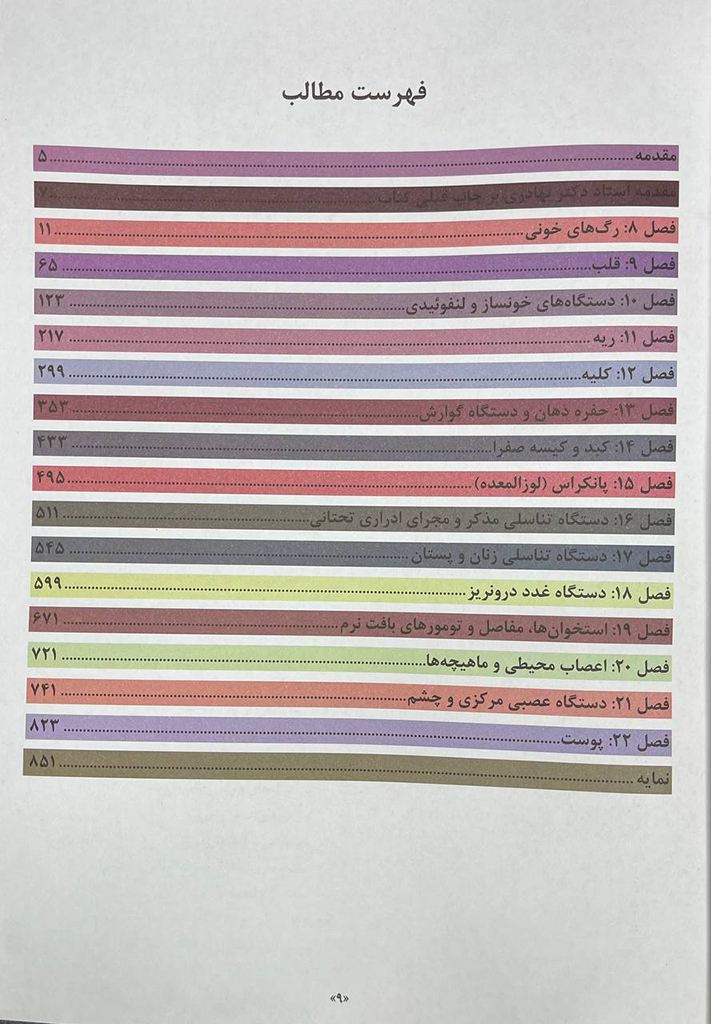 فهرست مطالب
مقدمه ۵
مقدمه استاد دکتر بهادری بر چاپ قبلی کتاب ۷
فصل ۸: رگ‌های خونی ۱۱
فصل ۹: قلب ۶۵
فصل ۱۰: دستگاه‌های خونساز و لنفوئیدی ۱۲۳
فصل ۱۱: ریه ۲۱۷
فصل ۱۲: کلیه ۲۹۹
فصل ۱۳: حفره دهان و دستگاه گوارش ۳۵۳
فصل ۱۴: کبد و کیسه صفرا ۴۳۳
فصل ۱۵: پانکراس (لوزالمعده) ۴۹۵
فصل ۱۶: دستگاه تناسلی مذکر و مجرای ادراری تحتانی ۵۱۱
فصل ۱۷: دستگاه تناسلی زنان و پستان ۵۴۵
فصل ۱۸: دستگاه غدد درونریز ۵۹۹
فصل ۱۹: استخوان‌ها، مفاصل و تومورهای بافت نرم ۶۷۱
فصل ۲۰: اعصاب محیطی و ماهیچه‌ها ۷۲۱
فصل ۲۱: دستگاه عصبی مرکزی و چشم ۷۴۱
فصل ۲۲: پوست ۸۲۳
نمایه ۸۵۱
«۹»